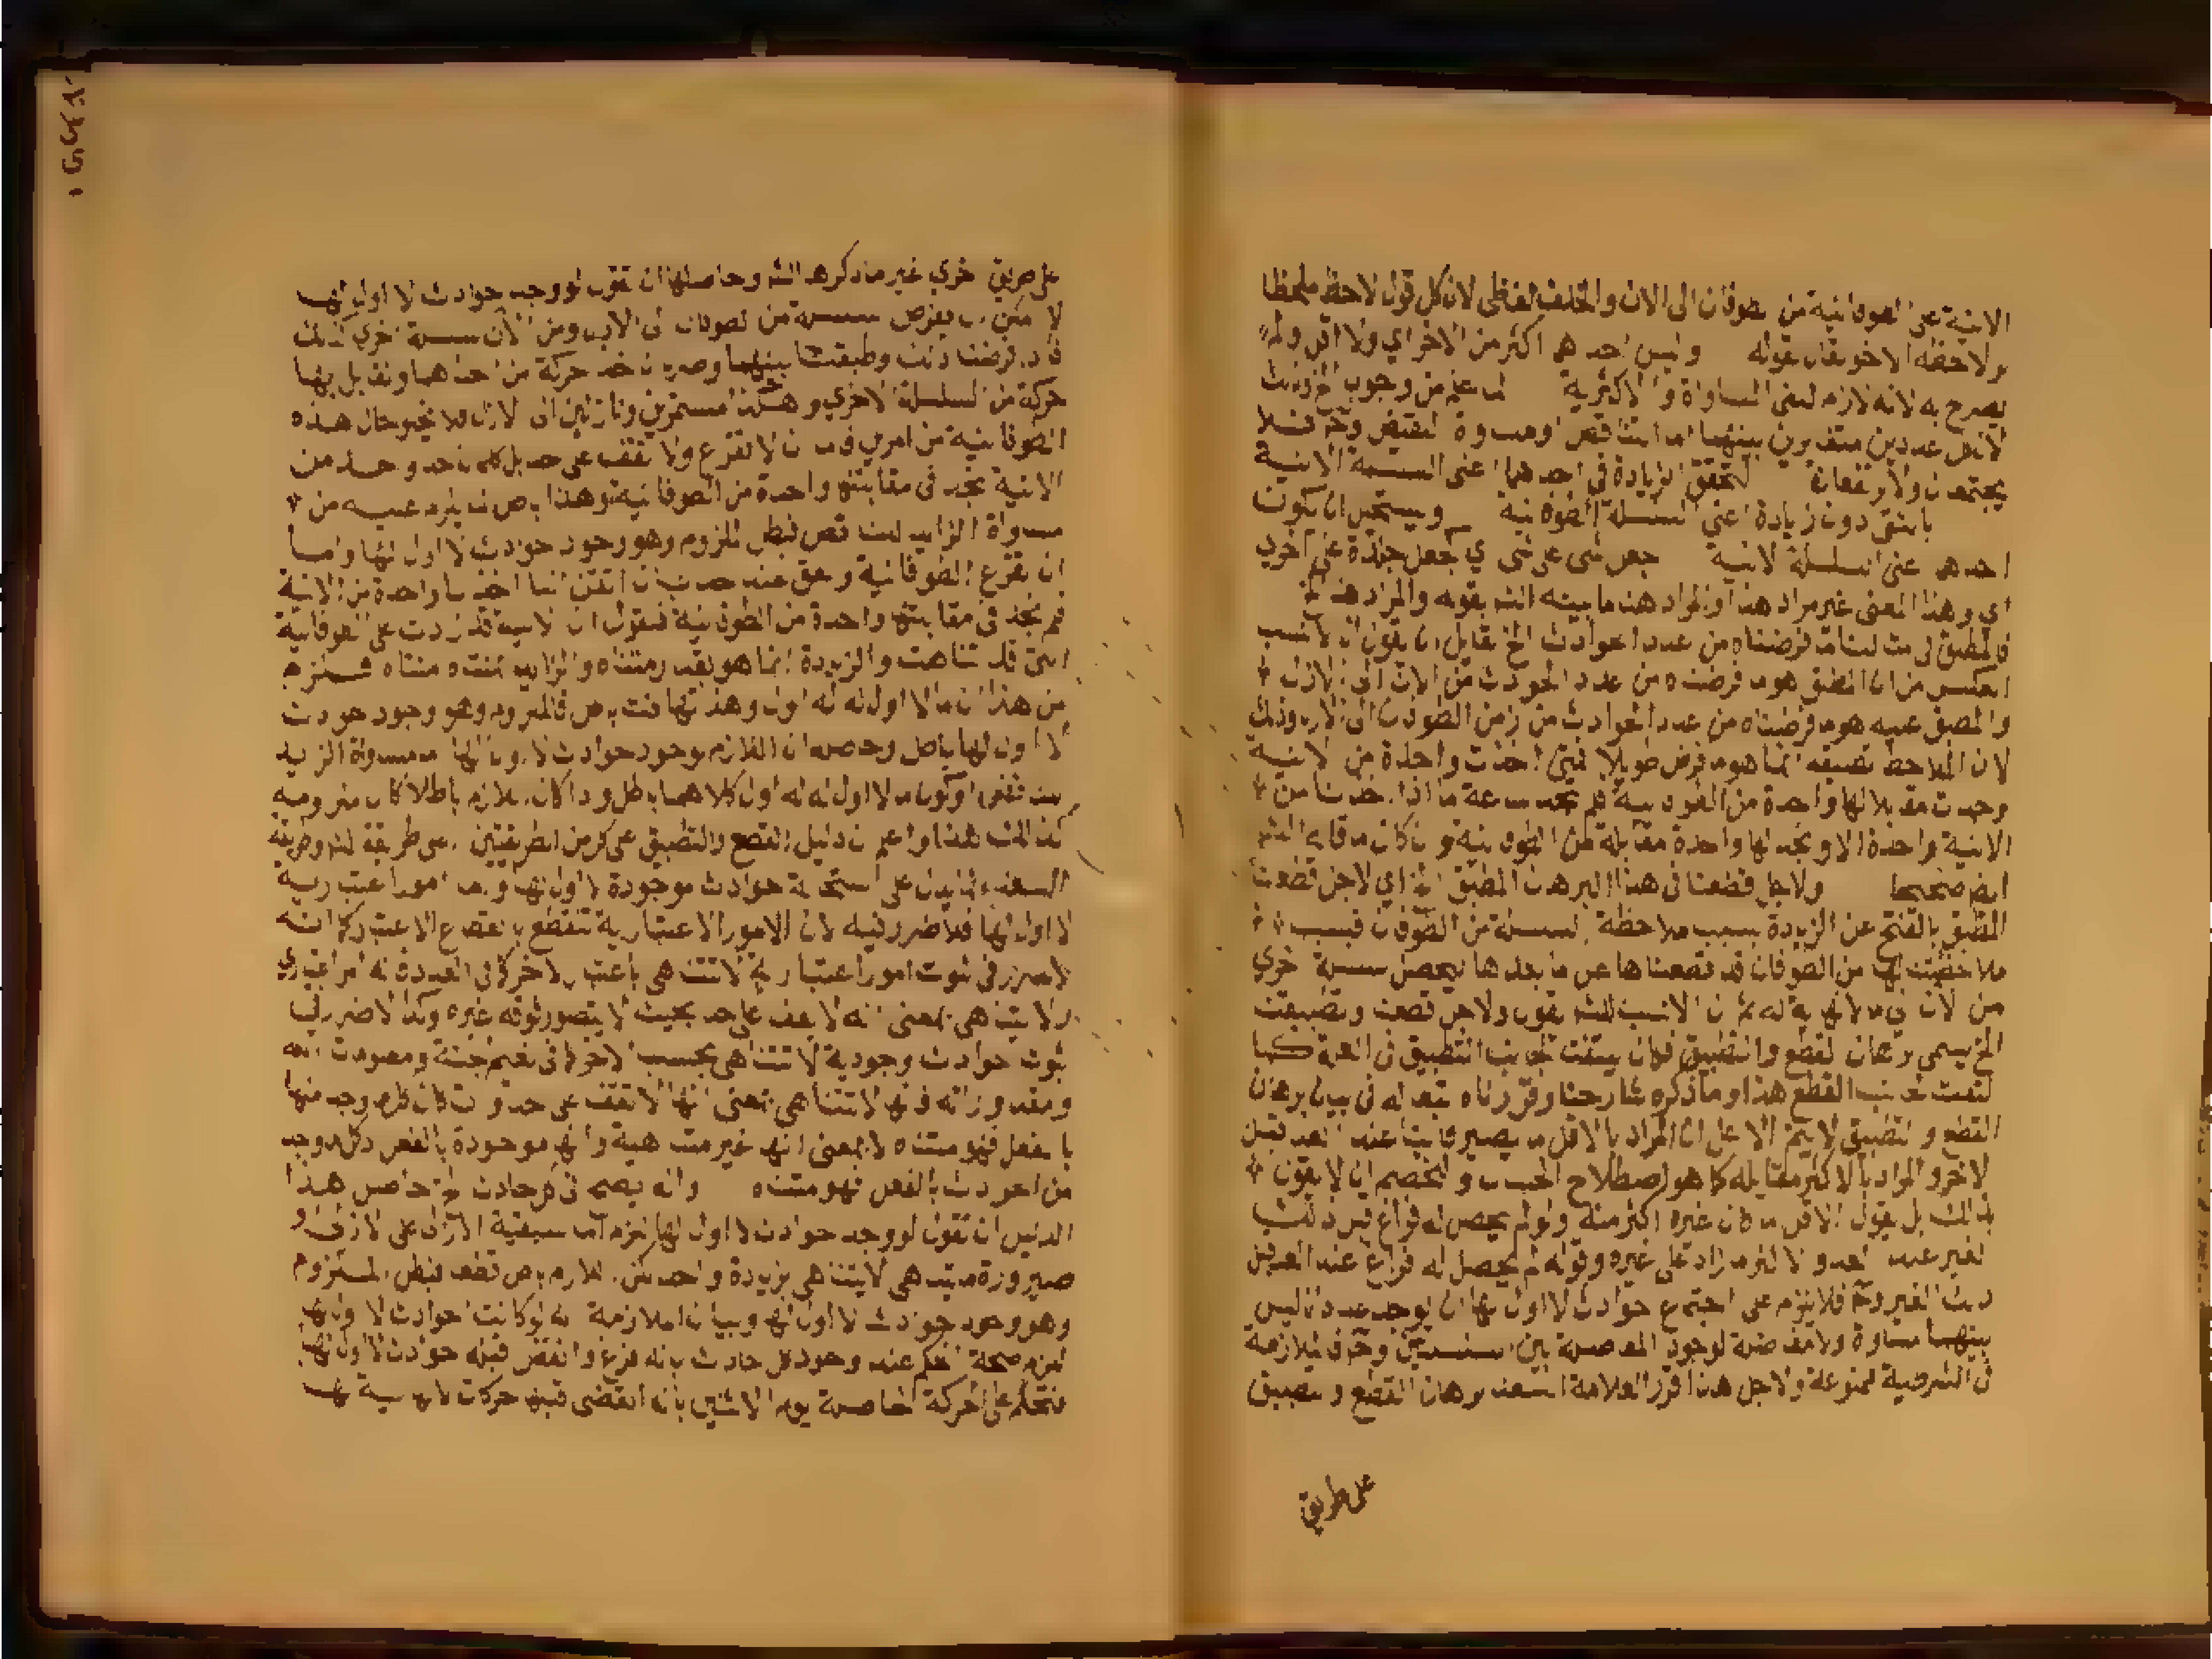 الانية على الطوفانية من الطوفان الى الان والخلف لفظي لان كل قول لاحظ ملحظا
ولاحظه الاخر بقال قوله وليس احدهما اكثر من الاخر اي ولا اقل ولم
يصرح به لانه لازم لنفي المساواة والاكثرية لما علم من وجوب الخ وذلك
لان كل عددين متغايرين بينهما اما التناقض او مساوة النقيض وح فلا
يجتمعان ولا يرتفعان لتحقق الزيادة في احدهما اعني السلسلة الانية
دون زيادة اعني السلسلة الطوفانية ويستحيل ان يكون
احدهما اعني السلسلة الانية جعل شي على شي اي جعل جملة على اخرى
اي وهذا المعنى غير مراد هنا والمراد هنا ما بينه الشم بقوله والمراد هنا الخ
فالمطبق في مثالنا ما فرضناه من عدد الحوادث الخ تقابل ان يقول ان الانسب
العكس من ان المطبق هو ما فرضناه من عدد الحوادث من الان الى الازل
والمطبق عليه هو ما فرضناه من عدد الحوادث من زمن الطوفان الى الازل وذلك
لان الملاحظ تطبيقه انما هو ما فرض طويلا فمتى اخذت واحدة من الانية
وجدت مقابلا لها واحدة من الطوفانية فلم نجد ساعة ما اذا اخذنا من
الانية واحدة الا ونجد لها واحدة مقابلة من الطوفانية وان كان ما قاله الشم
ايضا صحيحا ولاجل قطعنا في هذا البرهان المطبق الخ اي لاجل قطعنا
المطبق بالفتح عن الزيادة بسبب ملاحظة السلسلة من الطوفان فبسبب
ملاحظتنا لها من الطوفان قد قطعناها عن ما بعدها ليحصل سلسلة اخرى
من الان الى ما لا نهاية له ثم ان الانسب للشم يقول ولاجل قطعنا وتطبيقنا
الخ يسمى برهان القطع والتطبيق فكان يلتفت لجانب التطبيق في العلة كما
التفت لجانب القطع هذا وما ذكره شارحنا وقررناه تبعا له في بيان برهان
القطع والتطبيق لا يتم الا على ان المراد بالاقل ما يصير فانيا عند العد قبل
الاخر والمراد بالاكثر مقابله كما هو اصطلاح الحساب والخصم ان لا يقول
بذلك بل يقول الاقل ما كان غيره اكثر منه ولو لم يحصل له فراغ قبل ذلك
الغير عند العد والاكثر ما زاد على غيره وقوله لم يحصل له فراغ عند العد قبل
ذلك الغير وح فلا يلزم على اجتماع حوادث لا اول لها ان يوجد عددان ليس
بينهما مساوة ولا مفاضلة لوجود المفاصلة بين السلسلتين وح فالملازمة
في الشرطية ممنوعة ولاجل هذا قرر العلامة السعد برهان القطع والتطبيق
على طريق
على طريق اخرى غير ما ذكره الشم وحاصلها ان تقول لو وجد حوادث لا اول لها
لا مكن ان يفرض سلسلة من الطوفان الى الازل ومن الان سلسلة اخرى كذلك
فاذا فرضنا ذلك وطبقنا بينهما وصرنا ناخذ حركة من احداهما ونقابل بها
حركة من السلسلة الاخرى وهكذا مستمرين ونازلين الى الازل فلا يخلو حال هذه
الطوفانية من امرين فاما ان لا تفرغ ولا تقف على حد بل كلما ناخذ واحدة من
الانية نجد في مقابلتها واحدة من الطوفانية وهذا باطل لما يلزم عليه من
مساواة الزائد للناقص فبطل الملزوم وهو وجود حوادث لا اول لها واما
ان تفرغ الطوفانية وتقف عند حد بان اتفق اننا اخذنا واحدة من الانية
فلم نجد في مقابلتها واحدة من الطوفانية فنقول ان الانية قد زادت على الطوفانية
التي قد تناهت والزيادة انما هو بقدر متناه والزايد بمتناه متناه فيلزم
من هذا ان ما لا اول له له اول وهذا تهافت باطل فالملزوم وهو وجود حوادث
لا اول لها باطل وحاصله ان اللازم لوجود حوادث لا اول لها اما مساواة الزايد
للناقص او كون ما لا اول له له اول كلاهما باطل واذا كان اللازم باطلا كان ملزومه
كذلك هذا واعلم ان دليل القطع والتطبيق على كل من الطريقتين اي طريقة الشم وطريقة
السعد انما يدل على استحالة حوادث موجودة لا اول لها واما امور اعتبارية
لا اول لها فلا ضرر فيه لان الامور الاعتبارية تنقطع بانقطاع الاعتبار كما انه
لا ضرر في ثبوت امور اعتبارية لا تتناهي باعتبار الاخر كما في العدد فانه امر اعتباري
ولا يتناهي بمعنى انه لا يقف على حد بحيث لا يتصور فوقه غيره وكذا لا ضرر في
ثبوت حوادث وجودية لا تتناهي بحسب الاخر كما في نعيم الجنة ومعلومات الله
ومقدوراته فانها لا تتناهي بمعنى انها لا تقف على حد وان كان كلما وجد منها
بالفعل فهو متناه لا بمعنى انها غير متناهية وانها موجودة بالفعل وكل ما وجد
من الحوادث بالفعل فهو متناه وانه يصح في كل حادث الخ حاصل هذا
الدليل ان تقول لو وجد حوادث لا اول لها للزم اما سبقية الازلي على الازلي او
صيرورة ما يتناهي لا يتناهي بزيادة واحد لكن اللازم باطل قطعا فبطل المستلزم
وهو وجود حوادث لا اول لها وبيان الملازمة انه لو كانت الحوادث لا اول لها
لزم صحة الحكم عند وجود كل حادث بانه فرغ وانقضى قبله حوادث لا اول لها
فنحكم على الحركة الحاصلة يوم الاثنين بانه انقضى قبلها حركات لا نهاية لها